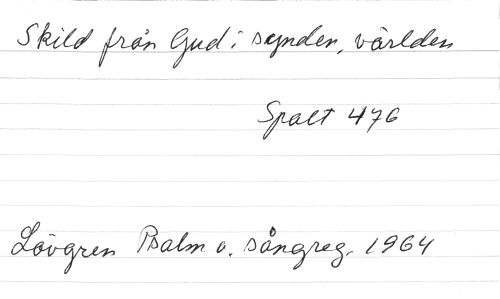 Skild från Gud i synden, världen
Spalt 476
Lövgren Psalm o. sångreg. 1964